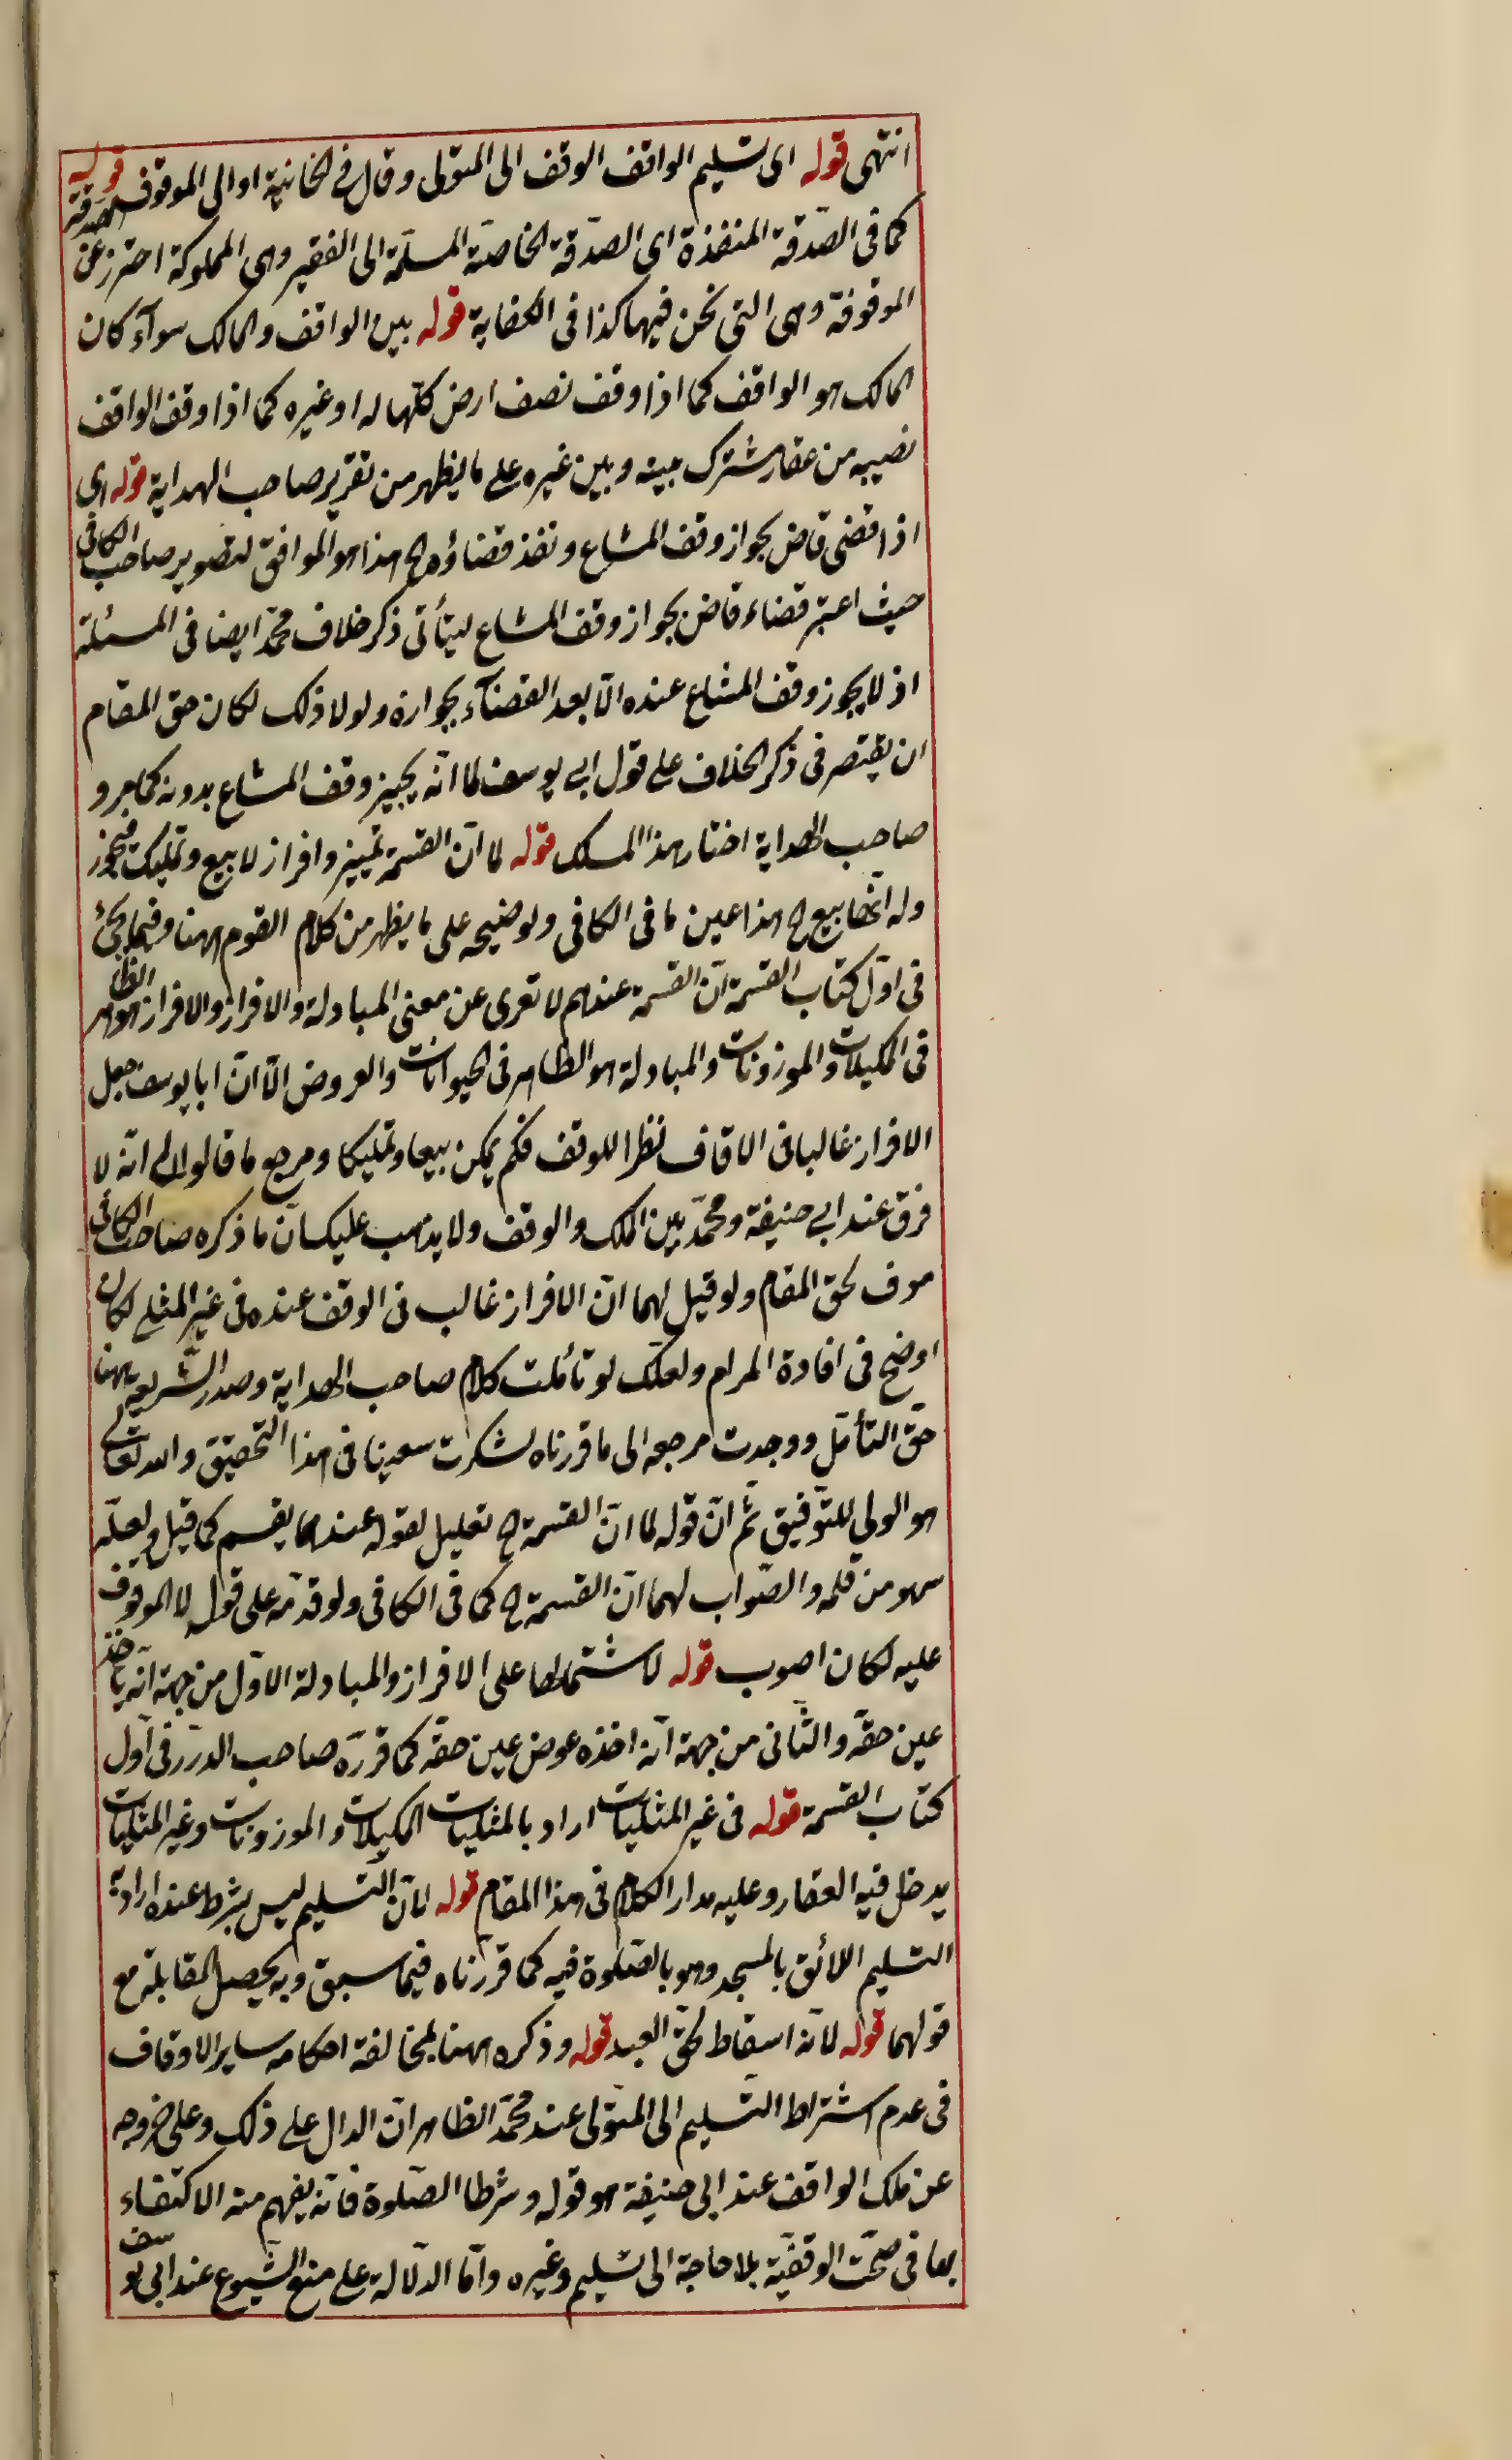 انتهى قوله اى تسليم الواقف الوقف الى المتولى وقال فى الخانية او الى الموقوف قوله
كما فى الصّدقة المنفذة اى الصدّقة الخاصّة المسلّمة الى الفقير وهى المملوكة احترز عن الصدقة
الموقوفة وهى التى نحن فيها كذا فى الكفاية قوله بين الواقف والمالك سوآء كان
المالك هو الواقف كما اذا وقف نصف ارض كلّها له او غيره كما اذا وقف الواقف
نصيبه من عقار مشترك بينه وبين غيره على ما يظهر من تقرير صاحب الهداية قوله اى
اذا قضى قاض بجواز وقف المشاع ونفذ قضاؤه الخ هذا هو الموافق لتصوير صاحب الكافى
حيث اعتبر قضاء قاض بجواز وقف المشاع ليتأتى ذكر خلاف محمّد ايضا فى المسئلة
اذ لا يجوز وقف المشاع عنده الّا بعد القضآء بجوازه ولولا ذلك لكان حق المقام
ان يقتصر فى ذكر الخلاف على قول ابى يوسف لما انّه يجيز وقف المشاع بدونه كما مر و
صاحب الهداية اختار هذا المسلك قوله لما انّ القسمة تمييز وافراز لا بيع وتمليك فيجوز
وله انّها بيع الخ هذا عين ما فى الكافى وتوضيحه على ما يظهر من كلام القوم ههنا وفيما يجئ
فى اوّل كتاب القسمة انّ القسمة عندهم لا تعرى عن معنى المبادلة والافراز والافراز هو الظاهر
فى المكيلات والموزونات والمبادلة هو الظاهر فى الحيوانات والعروض الّا انّ ابا يوسف جعل
الافراز غالبا فى الاقاف نظرا للوقف فلم يمكن بيعا وتمليكا ومرجع ما قالوا الى انّه لا
فرق عند ابى حنيفة ومحمّد بين الملك والوقف ولا يذهب عليك انّ ما ذكره صاحب الكافى
موف لحق المقام ولو قيل لهما انّ الافراز غالب فى الوقف عنده فى غير المثلى لكان
اوضح فى افادة المرام ولعلّك لو تأمّلت كلام صاحب الهداية وصدر الشّريعة ههنا
حقّ التأمّل ووجدت مرجعه الى ما قرّرناه لشكرت سعينا فى هذا التّحقيق والله تعالى
هو الولى للتّوفيق ثم انّ قوله لما انّ القسمة الخ تعليل لقوله عندهما يقسم كما قيل ولعلّه
سهو من قلمه والصّواب لهما انّ القسمة الخ كما فى الكافى ولو قدّمه على قوله لا الموقوف
عليه لكان اصوب قوله لاشتمالها على الافراز والمبادلة الاوّل من جهة انّه ياخذ
عين حقّه والثّانى من جهة انّه اخذه عوض عين حقّه كما قرّره صاحب الدّرر فى اوّل
كتاب القسمة قوله فى غير المثليات اراد بالمثليات المكيلات والموزونات وغير المثليات
يدخل فيه العقار وعليه مدار الكلام فى هذا المقام قوله لانّ التّسليم ليس بشرط عنده اراد به
التسليم اللائق بالمسجد وهو بالصّلوة فيه كما قرّرناه فيما سبق وبه يحصل المقابلة مع
قولهما قوله لانّه اسقاط لحقّ العبد قوله وذكره ههنا لمخالفة احكامه ساير الاوقاف
فى عدم اشتراط التّسليم الى المتولى عند محمّد الظاهر انّ الدال على ذلك وعلى خروجه
عن ملك الواقف عند ابى حنيفة هو قوله وشرطا الصّلوة فانّه يفهم منه الاكتفاء
بها فى صحّت الوقفيّة بلا حاجة الى تسليم وغيره وامّا الدّلالة على منع الشّيوع عند ابى يوسف